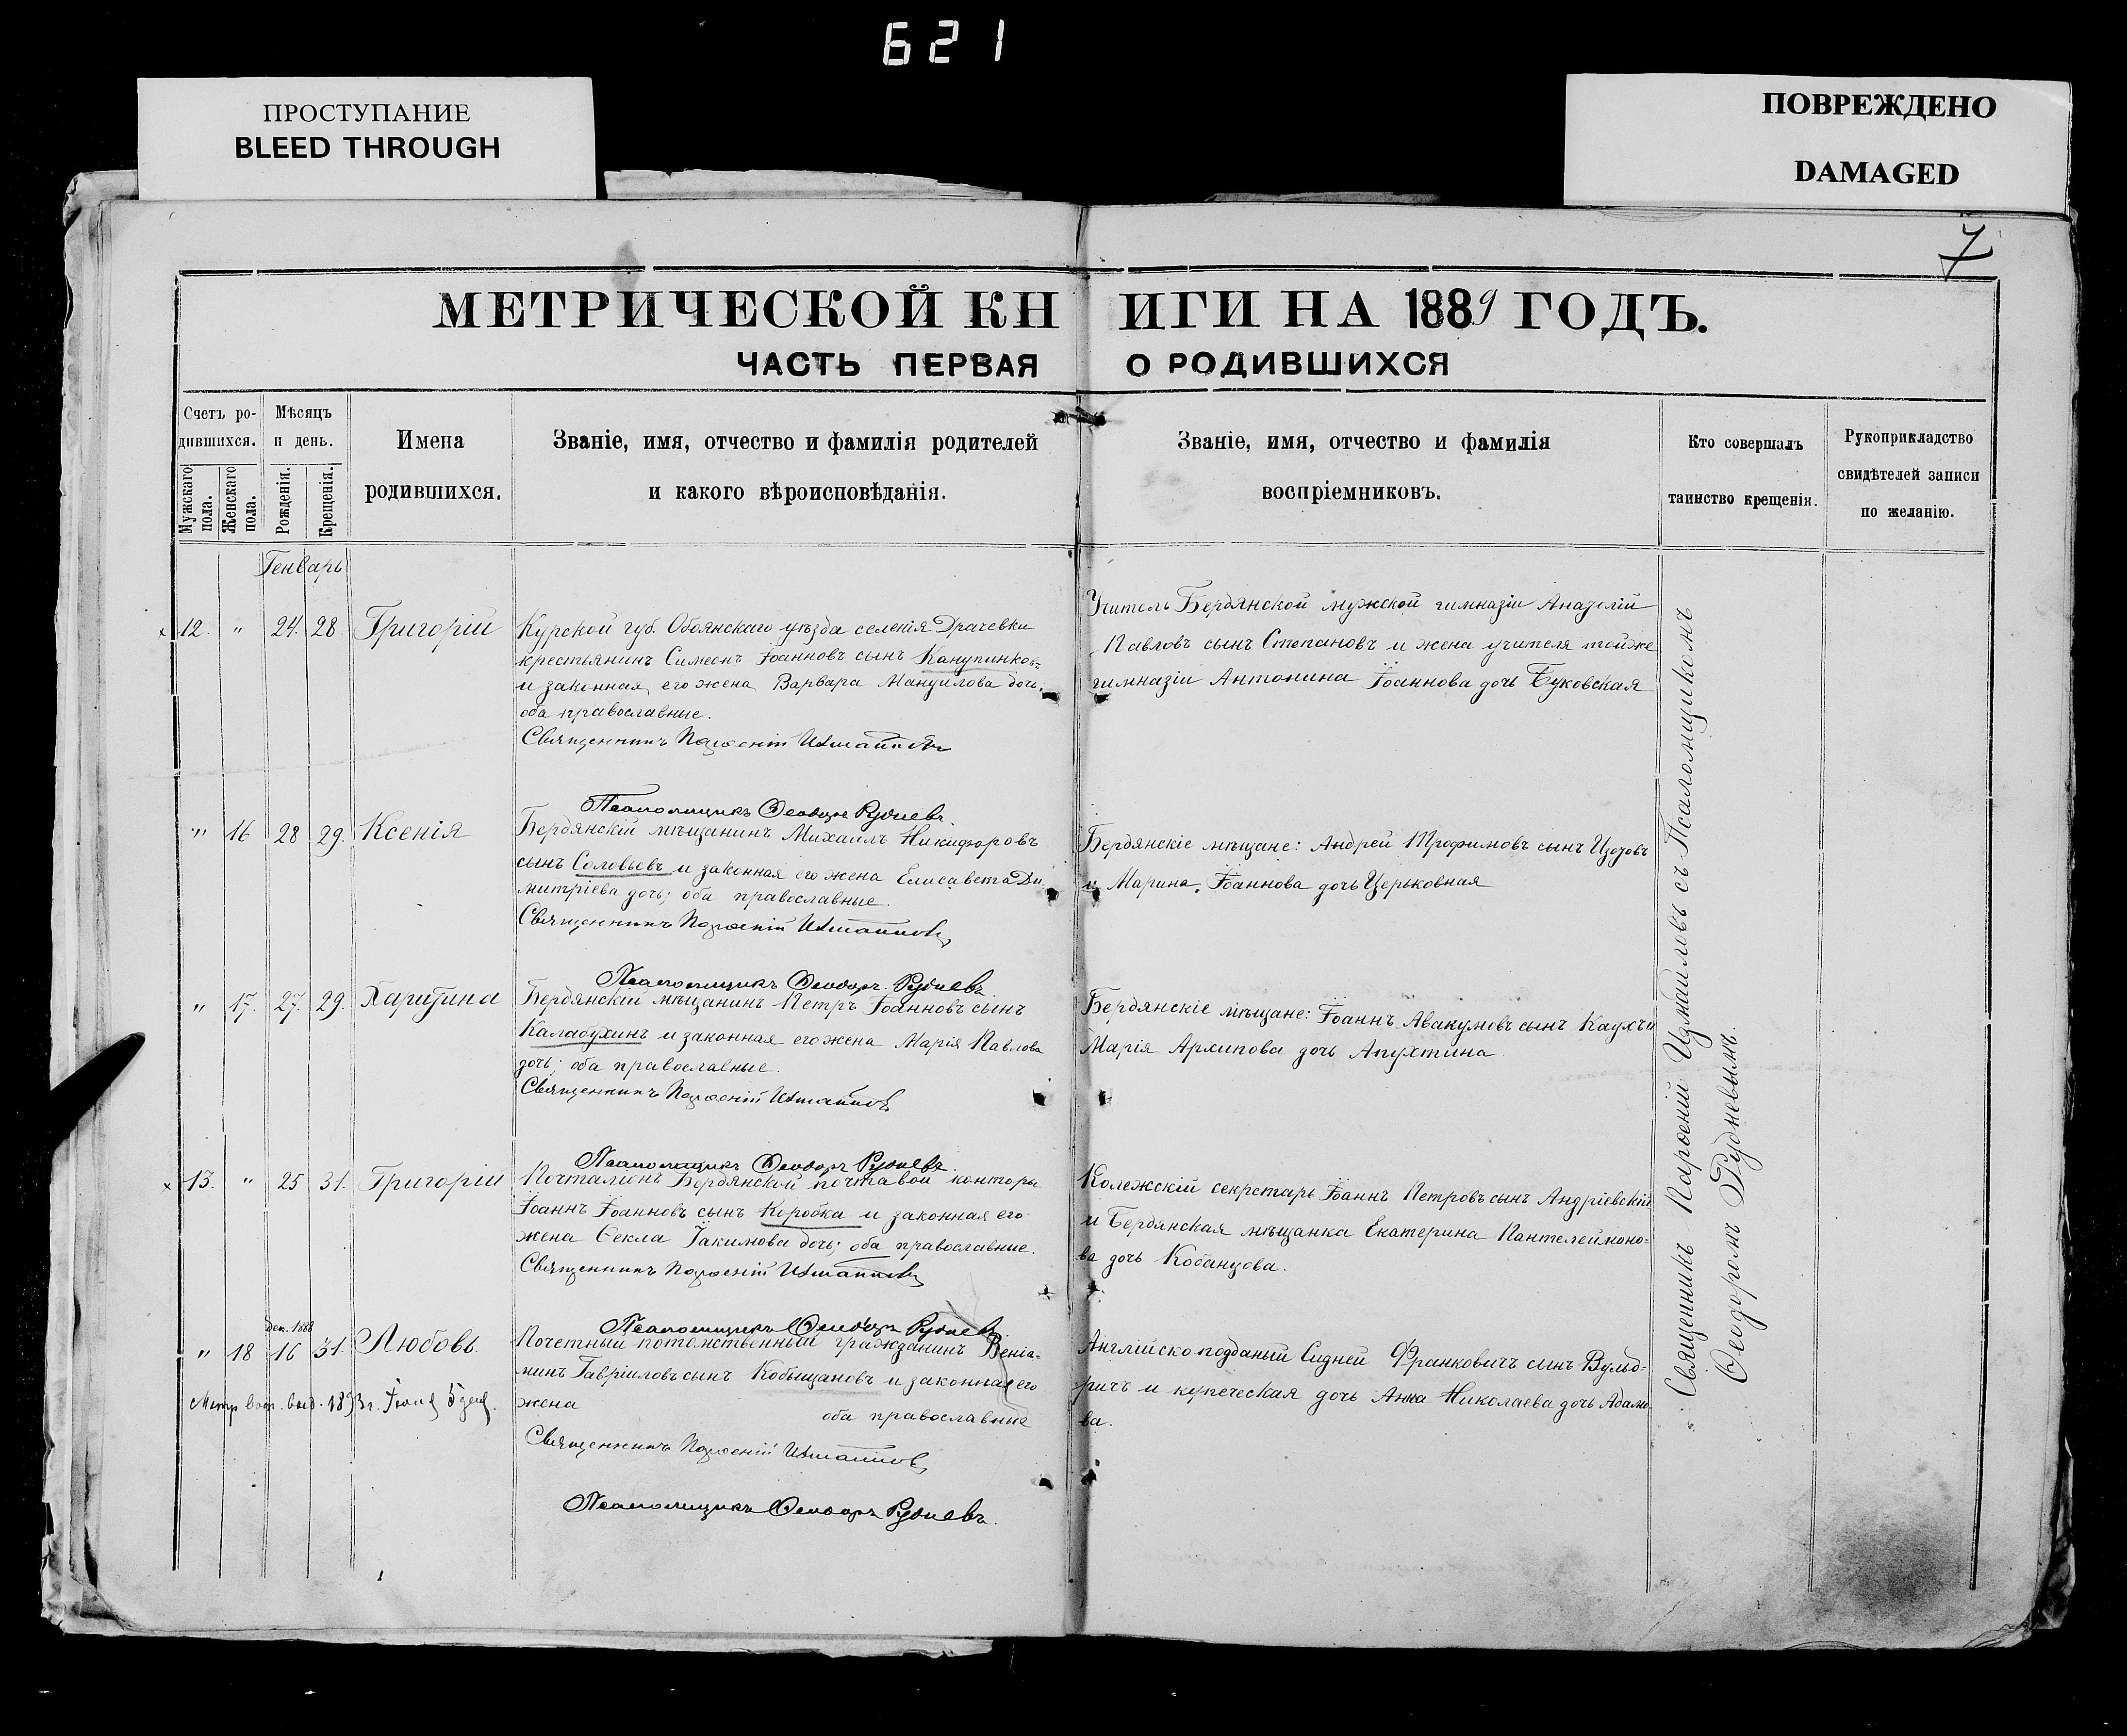 621
ПРОСТУПАНИЕ
BLEED THROUGH
ПОВРЕЖДЕНО
DAMAGED
7
МЕТРИЧЕСКОЙ КНИГИ НА 1889 ГОДЪ.
ЧАСТЬ ПЕРВАЯ О РОДИВШИХСЯ
Счетъ ро-
дившихся.
Мужскаго пола.
Женскаго пола.
Мѣсяцъ
и день.
Рожденія.
Крещенія.
Имена
родившихся.
Званіе, имя, отчество и фамилія родителей
и какого вѣроисповѣданія.
Званіе, имя, отчество и фамилія
воспріемниковъ.
Кто совершалъ
таинство крещенія.
Рукоприкладство
свидѣтелей записи
по желанію.
Генварь
12. " 24. 28. Григорій
Курской губ. Обоянскаго уѣзда селенія Драчевки
крестьянинъ Симеонъ Іоанновъ сынъ Канупинковъ
и законная его жена Варвара Мануилова дочь,
оба православные.
Священникъ Парѳеній Измаиловъ
Псаломщикъ Ѳеодоръ Рудневъ.
Учитель Бердянской мужской гимназіи Анатолій
Павловъ сынъ Степановъ и жена учителя тойже
гимназіи Антонина Іоаннова дочь Буковская
" 16 28 29. Ксенія
Бердянскій мѣщанинъ Михаилъ Никифоровъ
сынъ Соловьевъ и законная его жена Елисавета Ди-
митріева дочь; оба православные.
Священникъ Парѳеній Измаиловъ
Псаломщикъ Ѳеодоръ Рудневъ.
Бердянскіе мѣщане: Андрей Трофимовъ сынъ Изотовъ
и Марина Іоаннова дочь Церьковная
" 17. 27. 29. Харитина
Бердянскій мѣщанинъ Петръ Іоанновъ сынъ
Калабухинъ и законная его жена Марія Павлова
дочь; оба православные.
Священникъ Парѳеній Измаиловъ
Псаломщикъ Ѳеодоръ Рудневъ.
Бердянскіе мѣщане: Іоаннъ Авакумовъ сынъ
Марія Архипова дочь Апухтина
13. " 25 31. Григорій
Почталіонъ Бердянской почтавой конторы
Іоаннъ Іоанновъ сынъ Коробка и законная его
жена Ѳекла Іакимова дочь; оба православные.
Священникъ Парѳеній Измаиловъ
Псаломщикъ Ѳеодоръ Рудневъ.
Колежскій секретарь Іоаннъ Петровъ сынъ Андріевскій
и Бердянская мѣщанка Екатерина Пантелеймоно-
ва дочь Кобанцова.
дек. 1888
" 18 16 31. Любовь.
Почетный потомственный гражданинъ Веніа-
минъ Гавріиловъ сынъ Кобыщановъ и законная его
жена оба православные
Священникъ Парѳеній Измаиловъ
Псаломщикъ Ѳеодоръ Рудневъ.
Англійско подданый Сидней Франковичъ сынъ Вульд-
ричъ и купеческая дочь Анна Николаева дочь Адамо-
ва.
1893 г.
Священникъ Парѳеній Измаиловъ съ Псаломщикомъ
Ѳеодоромъ Рудневымъ.